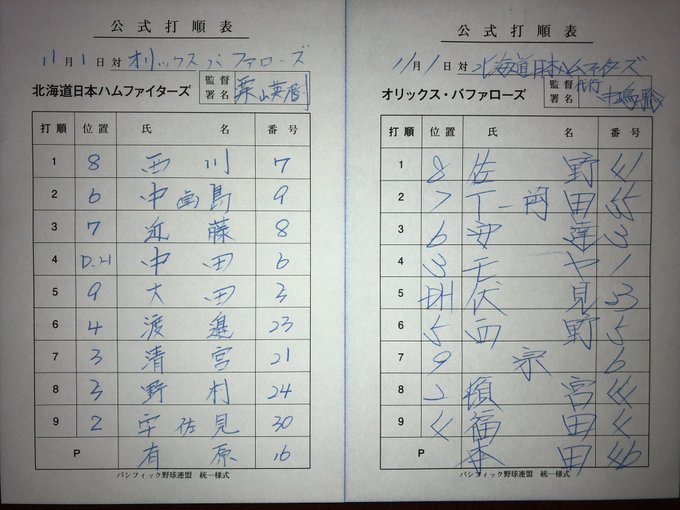 公式打順表
11月1日対 オリックスバファローズ
北海道日本ハムファイターズ 監督署名 栗山英樹
打順 位置 氏名 番号
1 8 西川 7
2 6 中島 9
3 7 近藤 8
4 D.H 中田 6
5 9 大田 3
6 4 渡邉 23
7 3 清宮 21
8 3 野村 24
9 2 宇佐見 30
P 有原 16
パシフィック野球連盟 統一様式
公式打順表
11月1日対 北海道日本ハムファイターズ
オリックス・バファローズ 監督署名 代行 中嶋聡
打順 位置 氏名 番号
1 8 佐野 41
2 7 T-岡田 55
3 6 安達 3
4 3 モヤ 1
5 DH 伏見 23
6 5 西野 5
7 9 宗 6
8 2 頓宮 44
9 4 福田 4
P 本田 46
パシフィック野球連盟 統一様式